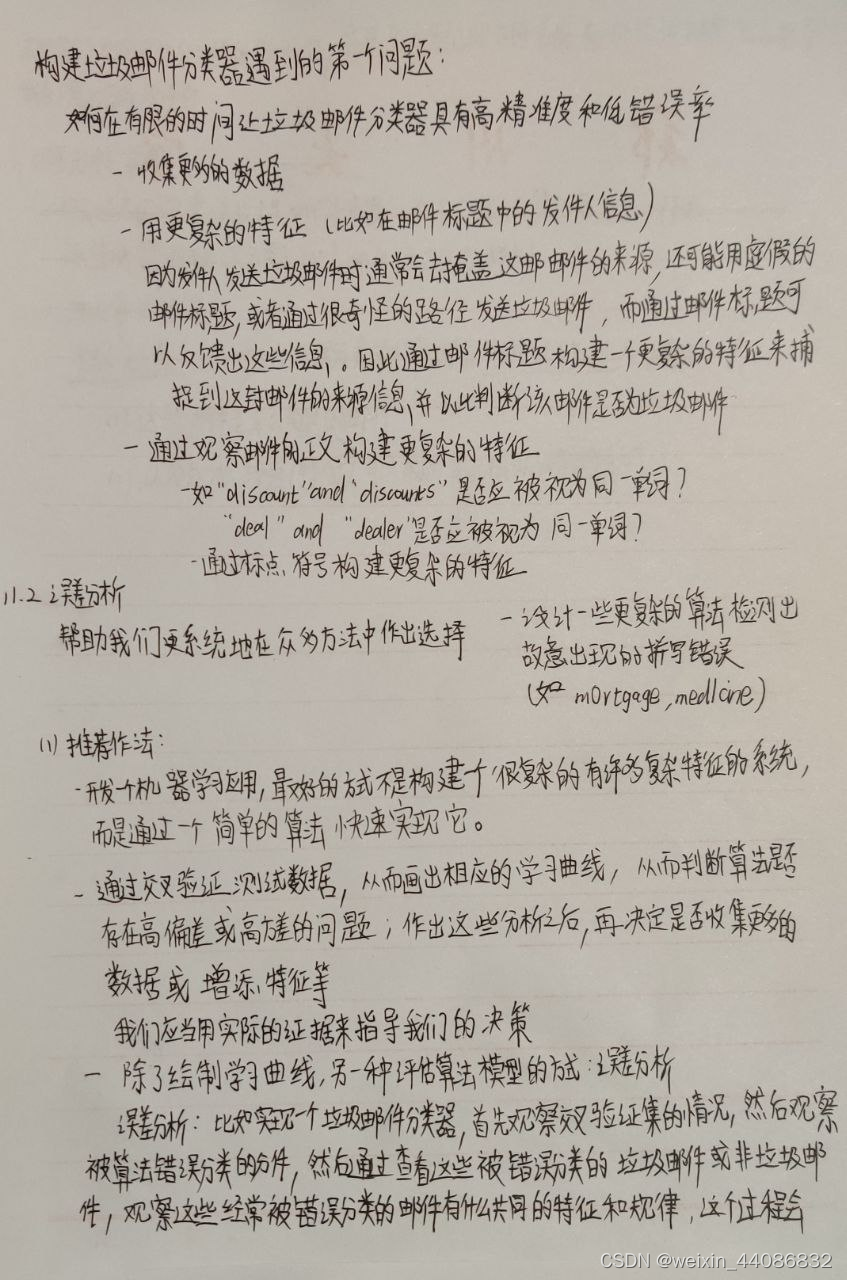 构建垃圾邮件分类器遇到的第一个问题：
如何在有限的时间让垃圾邮件分类器具有高精准度和低错误率
- 收集更多的数据
- 用更复杂的特征 (比如在邮件标题中的发件人信息)
因为发件人发送垃圾邮件时通常会去掩盖这邮邮件的来源,还可能用虚假的
邮件标题,或者通过很奇怪的路径发送垃圾邮件，而通过邮件标题可
以反馈出这些信息。因此通过邮件标题构建一个更复杂的特征来捕
捉到这封邮件的来源信息,并以此判断该邮件是否为垃圾邮件
- 通过观察邮件的正文构建更复杂的特征
-如"discount"and"discounts"是否应被视为同一单词?
"deal" and "dealer"是否应被视为同一单词?
-通过标点符号构建更复杂的特征
- 设计一些更复杂的算法检测出
故意出现的拼写错误
(如 m0rtgage,med1cine)
11.2 误差分析
帮助我们更系统地在众多方法中作出选择
(1) 推荐作法:
-开发个机器学习应用,最好的方式不是构建一个很复杂的有许多复杂特征的系统,
而是通过一个简单的算法快速实现它。
- 通过交叉验证测试数据，从而画出相应的学习曲线，从而判断算法是否
存在高偏差或高方差的问题；作出这些分析之后,再决定是否收集更多的
数据或增添特征等
我们应当用实际的证据来指导我们的决策
- 除了绘制学习曲线,另一种评估算法模型的方式:误差分析
误差分析：比如实现一个垃圾邮件分类器,首先观察交叉验证集的情况,然后观察
被算法错误分类的文件,然后通过查看这些被错误分类的垃圾邮件或非垃圾邮
件，观察这些经常被错误分类的邮件有什么共同的特征和规律,这个过程会
CSDN @weixin_44086832